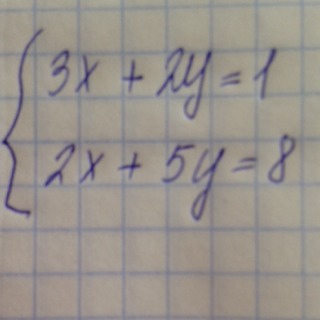 3x + 2y = 1
2x + 5y = 8